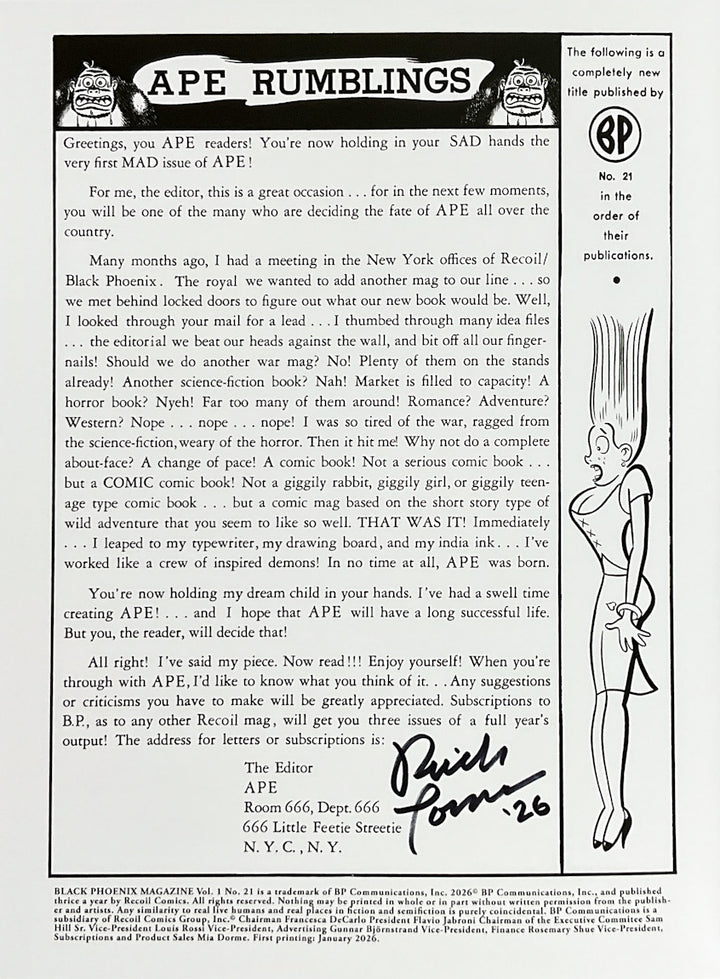 APE RUMBLINGS
Greetings, you APE readers! You're now holding in your SAD hands the
very first MAD issue of APE!
For me, the editor, this is a great occasion . . . for in the next few moments,
you will be one of the many who are deciding the fate of APE all over the
country.
Many months ago, I had a meeting in the New York offices of Recoil/
Black Phoenix. The royal we wanted to add another mag to our line . . . so
we met behind locked doors to figure out what our new book would be. Well,
I looked through your mail for a lead . . . I thumbed through many idea files
. . . the editorial we beat our heads against the wall, and bit off all our finger-
nails! Should we do another war mag? No! Plenty of them on the stands
already! Another science-fiction book? Nah! Market is filled to capacity! A
horror book? Nyeh! Far too many of them around! Romance? Adventure?
Western? Nope . . . nope . . . nope! I was so tired of the war, ragged from
the science-fiction, weary of the horror. Then it hit me! Why not do a complete
about-face? A change of pace! A comic book! Not a serious comic book . . .
but a COMIC comic book! Not a giggily rabbit, giggily girl, or giggily teen-
age type comic book . . . but a comic mag based on the short story type of
wild adventure that you seem to like so well. THAT WAS IT! Immediately
. . . I leaped to my typewriter, my drawing board, and my india ink. . . I've
worked like a crew of inspired demons! In no time at all, APE was born.
You're now holding my dream child in your hands. I've had a swell time
creating APE! . . . and I hope that APE will have a long successful life.
But you, the reader, will decide that!
All right! I've said my piece. Now read!!! Enjoy yourself! When you're
through with APE, I'd like to know what you think of it. . . Any suggestions
or criticisms you have to make will be greatly appreciated. Subscriptions to
B.P., as to any other Recoil mag, will get you three issues of a full year's
output! The address for letters or subscriptions is:
The Editor
APE
Room 666, Dept. 666
666 Little Feetie Streetie
N. Y. C., N. Y.
'26
The following is a
completely new
title published by
BP
No. 21
in the
order of
their
publications.
BLACK PHOENIX MAGAZINE Vol. 1 No. 21 is a trademark of BP Communications, Inc. 2026© BP Communications, Inc., and published
thrice a year by Recoil Comics. All rights reserved. Nothing may be printed in whole or in part without written permission from the publish-
er and artists. Any similarity to real live humans and real places in fiction and semifiction is purely coincidental. BP Communications is a
subsidiary of Recoil Comics Group, Inc.© Chairman Francesca DeCarlo President Flavio Jabroni Chairman of the Executive Commitee Sam
Hill Sr. Vice-President Louis Rossi Vice-President, Advertising Gunnar Björnstrand Vice-President, Finance Rosemary Shue Vice-President,
Subscriptions and Product Sales Mia Dorme. First printing: January 2026.